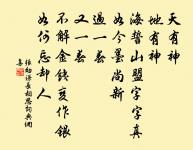 天有神
地有神
海誓山盟字字真
如今墨尚新
過一春
又一春
不解金錢變作銀
如何忘却人
張幼謙長相思詞典網